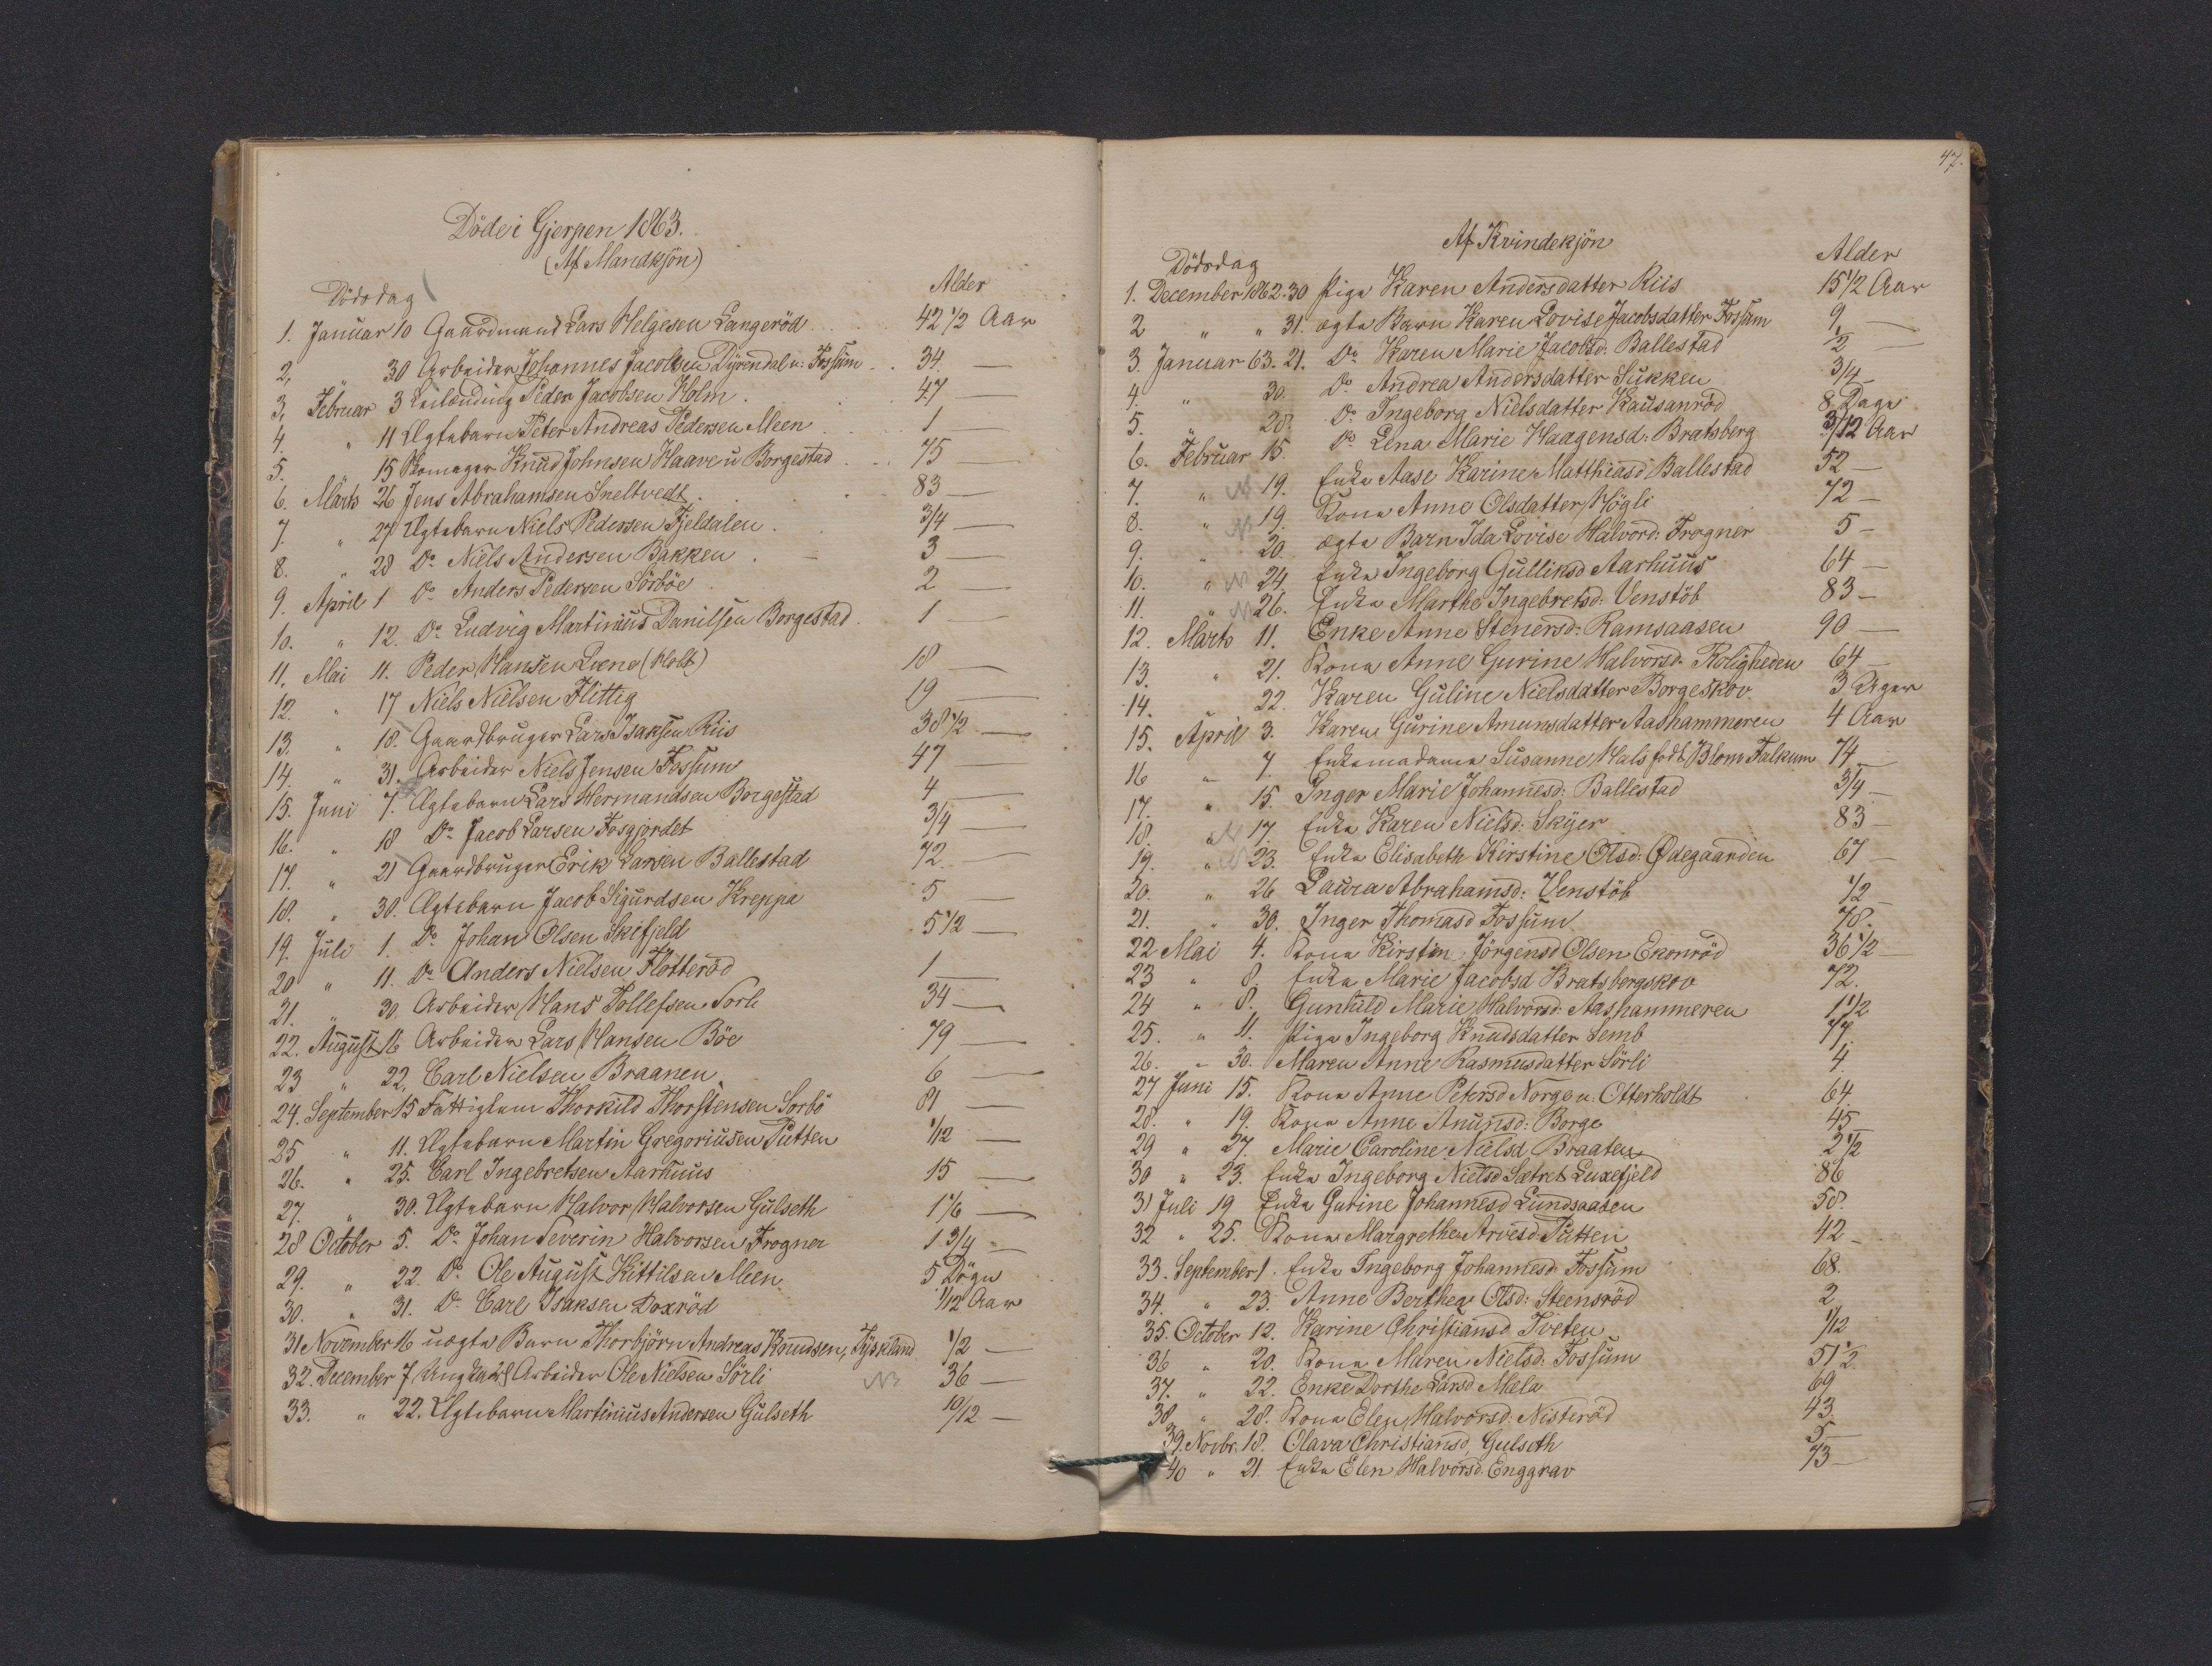 Döde i Gjerpen 1863.
(Af Mandkjön)
Dödsdag Alder
1. Januar 10 Gaardmand Lars Helgesen Langeröd 42 1/2 Aar
2, " 30 Arbeider Johannes Jacobsen Dyrendal u: Fossum 34. —
3, Februar 3 Leilænding Peder Jacobsen Holm 47 —
4. " 11 Ægtebarn Peter Andreas Pedersen Meen 1 —
5. " 15 Skomager Knud Johnsen Haave u Borgestad 75 —
6. Märts 26 Jens Abrahamsen Sneltvedt 83 —
7. " 27 Ægtebarn Niels Pedersen Fjeldalen 3/4 —
8. " 28 Do Niels Andersen Bakken 3 —
9. April 1 Do Anders Pedersen Sörböe 2 —
10. " 12. Do Ludvig Martinius Danilsen Borgestad 1 —
11. Mai 11. Peder Hansen Luene (Holt) 18 —
12. " 17 Niels Nielsen Flittig 19 —
13. " 18. Gaardbruger Lars Isaksen Riis 38 1/2 —
14. " 31. Arbeider Niels Jensen Fossum 47 —
15. Juni 7. Ægtebarn Lars Hermandsen Borgestad 4 —
16. " 18 Do Jacob Larsen Fosgjordet 3/4 —
17. " 21 Gaardbruger Erik Larsen Ballestad 72. —
18. " 30. Ægtebarn Jacob Sigurdsen Kreppa 5 —
19. Juli 1. Do Johan Olsen Skifjeld 5 1/2 —
20 " 11. Do Anders Nielsen Flotteröd 1 —
21. " 30. Arbeider Hans Tollefsen Sorli 34 —
22. August 16 Arbeider Lars Hansen Böe 79 —
23 " 22, Carl Nielsen Braanen 6 —
24. September 15 Fattiglem Thorkild Thorstensen Sorbö 81 —
25 " 11. Ægtebarn Martin Gregoriusen Putten 1/12 —
26. " 25. Carl Ingebretsen Aarhuus 15 —
27. " 30. Ægtebarn Halvor Halvorsen Gulseth 1 1/6 —
28 October 5. Do Johan Severin Halvorsen Frogner 1 3/4 —
29. " 22. Do Ole August Kittilsen Meen 5 Dögn
30. " 31. Do Carl Isaksen Doxröd 1/12 Aar
31 November 16 uægte Barn Thorbjörn Andreas Knudsen, Tyskland 1/2 —
32. December 7 Arbeider Ole Nielsen Sörli NB 36 —
33. " 22. Ægtebarn Martinius Andersen Gulseth 10/12 —
47.
Af Kvindekjön
Dödsdag Alder
1. December 1862. 30 Pige Karen Andersdatter Riis 15 1/2 Aar
2 " " 31. ægte Barn Karen Lovise Jacobsdatter Fossum 9 —
3. Januar 63. 21. Do Karen Marie Jacobsd: Ballestad 1/2 —
4. " 30. Do Andrea Andersdatter Sukken 3/4 —
5. " 28. Do Ingeborg Nielsdatter Kausanröd 8 Dage
6. Februar 15. Do Lena Marie Haagensd: Bratsberg 3/12 Aar
7. " NB 19. Enke Aase Karine Matthiasd Ballestad 52 —
8. " NB 19. Kone Anne Olsdatter Högli 72 —
9. " 20. ægte Barn Ida Lovise Halvord: Frogner 5 —
10. " NB 24. Enke Ingeborg Gulliksd Aarhuus 64 —
11. " NB 26. Enke Marthe Ingebretsd: Venstöb 83 —
12. Märts 11. Enke Anne Stenersd: Ramsaasen 90 —
13. " 21. Kone Anne Gurine Halvorsd: Roligheden 64 —
14. " 22. Karen Guline Nielsdatter Borgeskov 3 Uger
15. April 3. Karen Gurine Amunsdatter Aashammeren 4 Aar
16 " 7. Enkemadame Susanne Hals födt Blom Falkum 74 —
17. " 15. Inger Marie Johannesd: Ballestad 3/4 —
18. " NB 17. Enke Karen Nielsd: Skyer 83 —
19. " NB 23. Enke Elisabeth Kirstine Olsd: Ødegaarden 67 —
20. " 26 Laura Abrahamsd: Venstöb 1/2 —
21. " 30. Inger Thomasd Fossum 78. —
22 Mai 4. Kone Kirstin Jörgensd Olsen Ekonröd 36 1/2 —
23 " 8. Enke Marie Jacobsd Bratsbergskov 72.
24 " 8. Gunhild Marie Halvorsd: Aashammeren 1 1/2
25. " 11. Pige Ingeborg Knudsdatter Semb 77.
26. " 30. Maren Anne Rasmusdatter Sörli 4
27 Juni 15. Kone Anne Petersd Norge u: Otterholdt 64.
28. " 19. Kone Anne Anunsd: Borge 45
29 " 27. Marie Caroline Nielsd Braaten 2 1/2
30 " 23. Enke Ingeborg Nielsd Sætret Luxefjeld 86
31 Juli 19 Enke Gurine Johannesd Lundsaasen 58.
32 " 25. Kone Margrethe Arvesd: Putten 42 —
33. September 1. Enke Ingeborg Johannesd: Fossum 68.
34. " 23. Anne Berthea Olsd: Steensröd 2
35. October 12. Karine Christiansd Tveten 1/12
36 " 20. Kone Maren Nielsd: Fossum 51 1/2
37. " 22. Enke Dorthe Larsd Mæla 69
38 " 28. Kone Elen Halvorsd: Nisteröd 43.
39. Novbr. 18. Olava Christiansd, Gulseth 5 —
40 " 21. Enke Elen Halvorsd. Enggrav 73 —